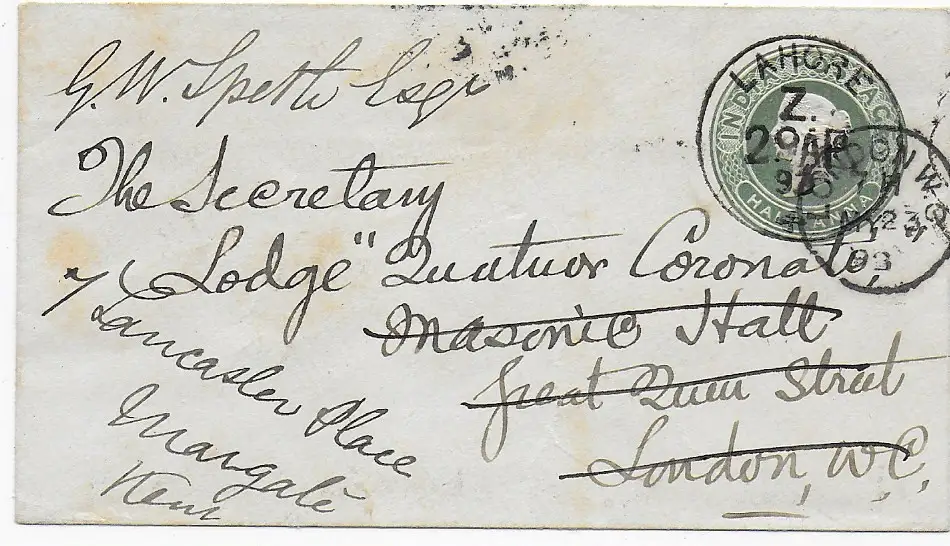 G. W. Speth Esqr
The Secretary
Lodge "Quatuor Coronati,
Masonic Hall
Great Queen Street
London, W.C,
7 Lancaster Place
Margate
Kent
LAHORE
Z.
2
9
INDIA
HALF ANNA
LONDON W.C
MY 23
93